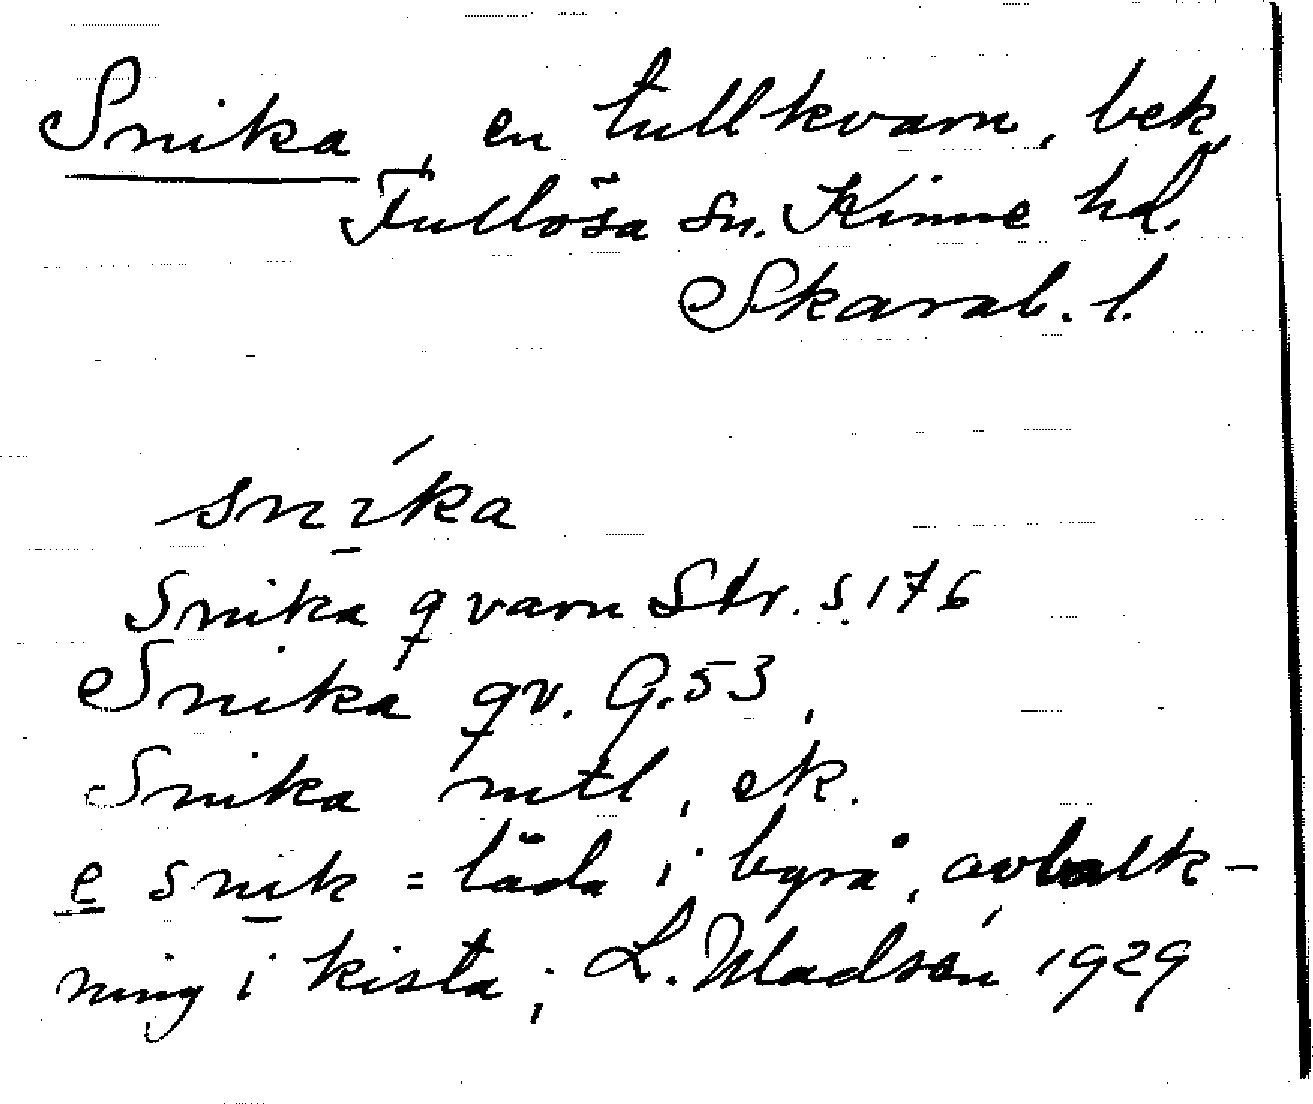 Snika, en tullkvarn, bek,
Fullösa sn. Kinne hd.
Skarab. l.
snika
Snika qvarn Str. s. 176
Snika qv. G. 53,
Snika mtl, ek.
e snik = låda i byrå, avbalk-
ning i kista; L. Madsén 1929